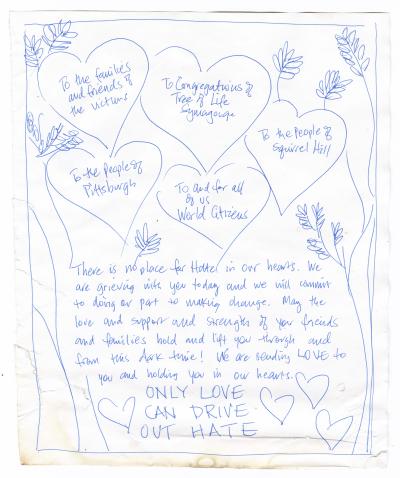 To the families
and friends of
the victims
To Congregations of
Tree of Life
Synagogue
To the People of
Squirrel Hill
To the People of
Pittsburgh
To and for all
of us
World Citizens
There is no place for Hate in our hearts. We
are grieving with you today and we will commit
to doing our part to making change. May the
love and support and strength of your friends
and families hold and lift you through and
from this dark time! We are sending LOVE to
you and holding you in our hearts.
ONLY LOVE
CAN DRIVE
OUT HATE